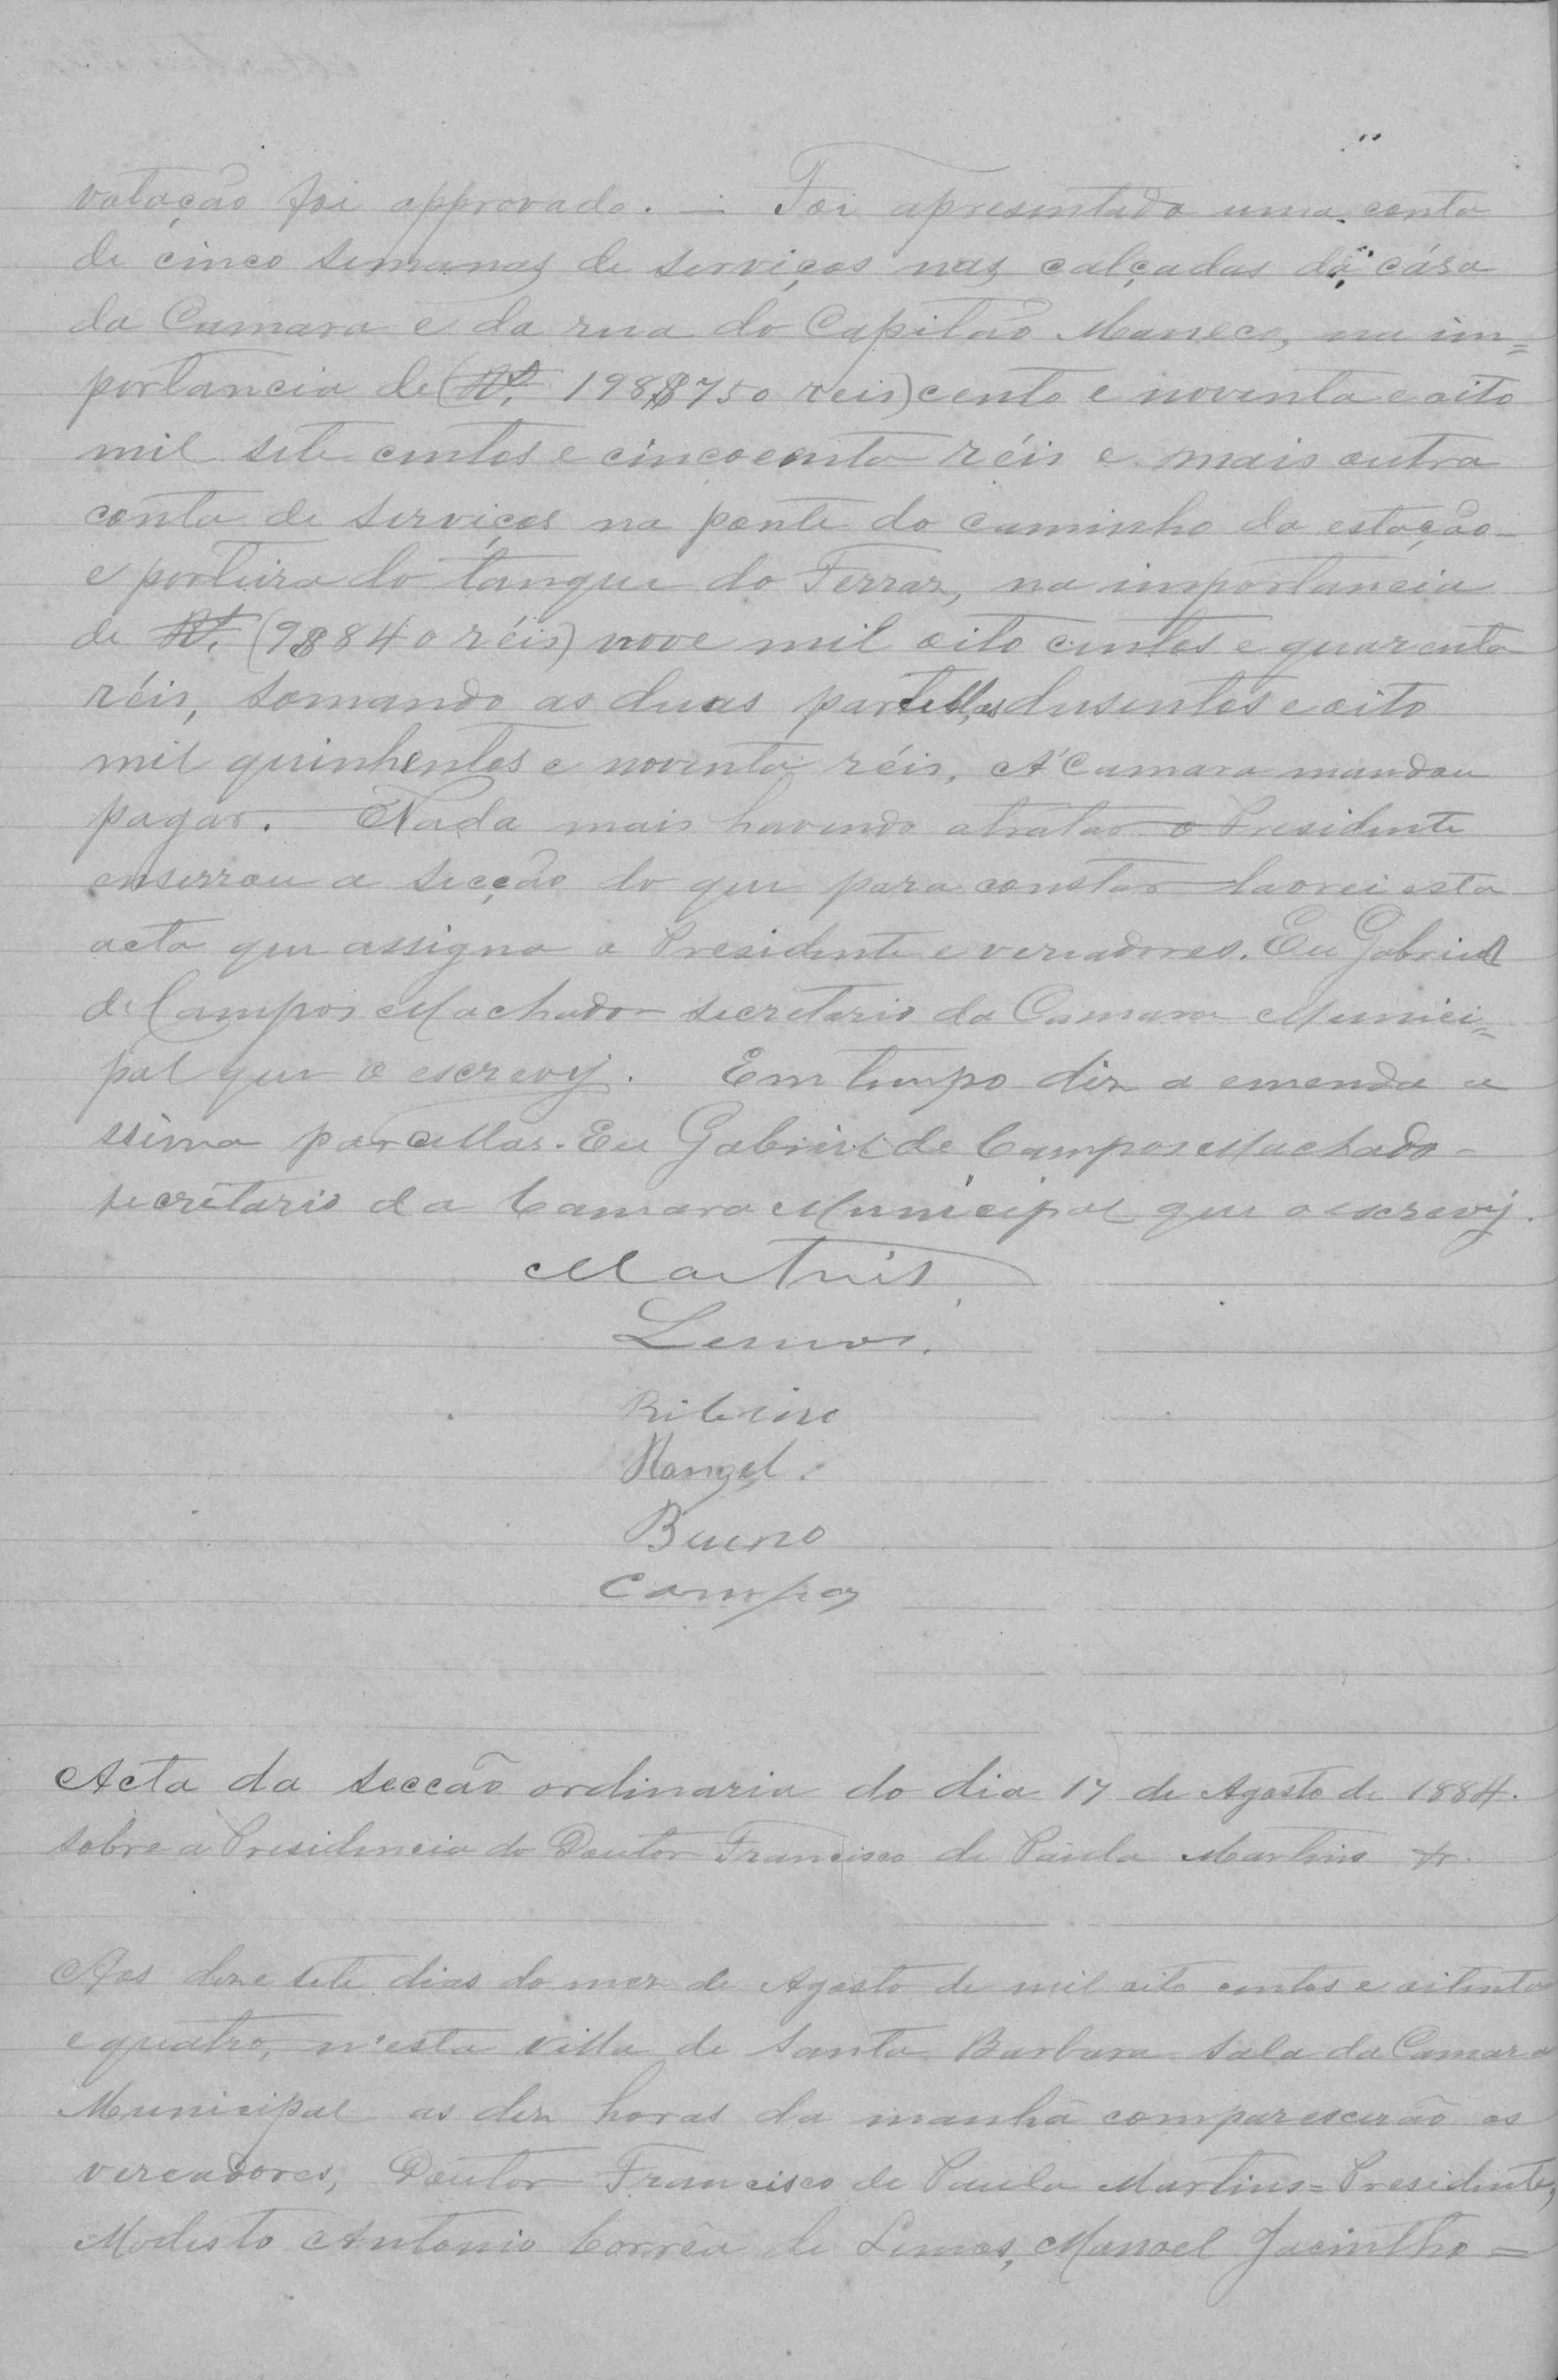 votação foi approvado. — Foi apresentada uma conta
de cinco semanas de serviços nas calçadas da cása
da Camara e da rua do Capitão Maneco, na im=
portancia de (Rs. 198$750 reis) cento e noventa e oito
mil sete centos e cincoenta réis e mais outra
conta de serviços na ponte do caminho da estação
e porteira do tanque do Ferraz, na importancia
de Rs. (9$840 réis) nove mil oito centos e quarenta
réis, somando as duas partellas dusentos e oito
mil quinhentos e noventa réis, A Camara mandou
pagar. Nada mais havendo atratar o Presidente
enserrou a secção do que para constar lavrei esta
acta que assigna o Presidente e vereadores. Eu Gabriel
de Campos Machado secretario da Camara Munici=
pal que o escrevy. Em tempo diz a emenda a
ssima parcellas. Eu Gabriel de Campos Machado
secretario da Camara Municipal que o escrevy.
Martins
Lemos.
Ribeiro
Rangel.
Bueno
Campos
Acta da secção ordinaria do dia 17 de Agosto de 1884.
sobre a Presidencia do Doutor Francisco de Paula Martins
Aos deze sete dias do mez de Agosto de mil oito centos e oitenta
e quatro, n'esta villa de Santa Barbara sala da Camara
Municipal as dez horas da manhã comparescerão os
vereadores, Doutor Francisco de Paula Martins = Presidente,
Modesto Antonio Corrêa de Lemos, Manoel Jacintho =